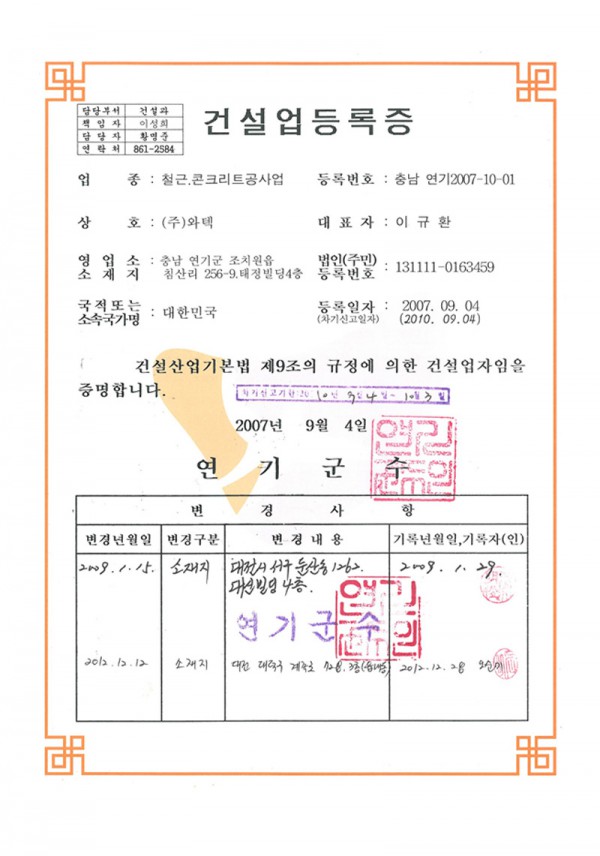 담당부서 건설과
책임자 이성희
담당자 황명준
연락처 861-2584
건설업등록증
업 종 : 철근.콘크리트공사업 등록번호 : 충남 연기2007-10-01
상 호 : (주)와텍 대 표 자 : 이 규 환
영 업 소 소 재 지 : 충남 연기군 조치원읍 침산리 256-9.태정빌딩4층
법인(주민) 등록번호 : 131111-0163459
국적또는 소속국가명 : 대한민국
등록일자 : 2007. 09. 04
(차기신고일자) (2010. 09.04)
건설산업기본법 제9조의 규정에 의한 건설업자임을
증명합니다.
2007년 9월 4일
연 기 군 수
변 경 사 항
변경년월일 변경구분 변 경 내 용 기록년월일,기록자(인)
2009. 1. 15. 소재지 대전시 서구 둔산동 1262. 2009. 1. 29.
대신빌딩 4층.
연 기 군 수
2012. 12. 12 소재지 대전 대덕구 2012. 12. 28